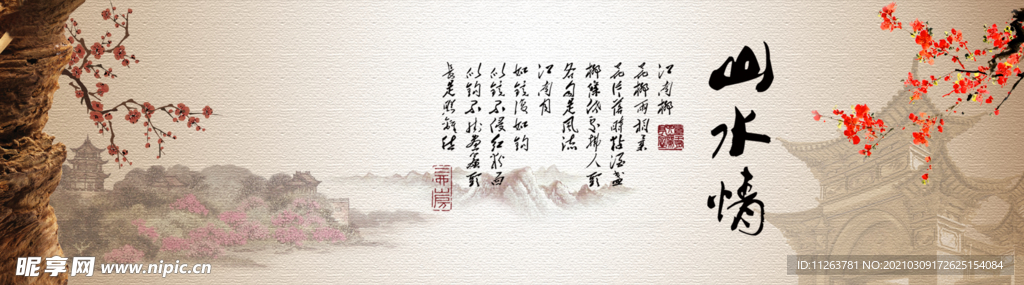 山水情
江南柳
花柳两相柔
花片落时黏酒盏
柳条低处拂人头
各自是风流
江南月
如镜复如钩
似镜不侵红粉面
似钩不挂画帘头
长是照离愁
昵享网 www.nipic.cn
ID:11263781 NO:20210309172625154084